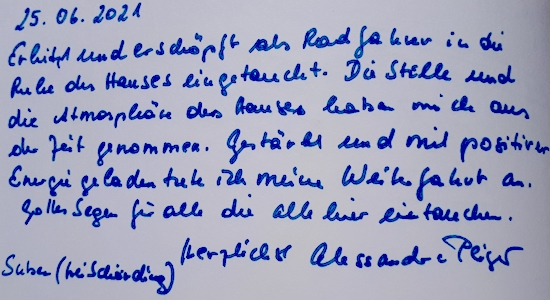 25.06.2021
Erhitzt und erschöpft als Radfahrer in die
Ruhe des Hauses eingetaucht. Die Stille und
die Atmosphäre des Hauses haben mich aus
der Zeit genommen. Gestärkt und mit positiver
Energie geladen trete ich meine Weiterfahrt an.
Gottes Segen für alle die alle hier eintauchen.
Suben (bei Schärding) herzlichst Alessandra